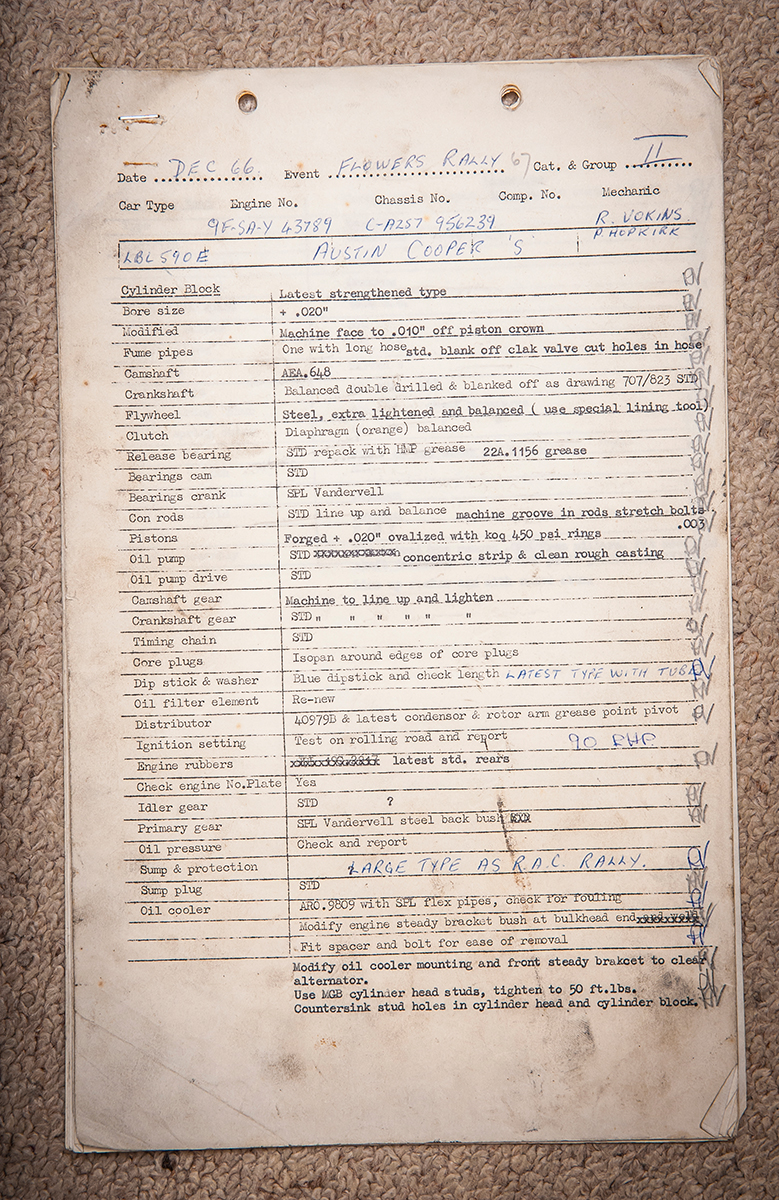 Date DEC 66. Event FLOWERS RALLY 67 Cat. & Group II
Car Type Engine No. Chassis No. Comp. No. Mechanic
9F-SA-Y 43789 C-A2S7 956239 R. VOKINS
P. HOPKIRK
LBL 590E AUSTIN COOPER 'S
Cylinder Block Latest strengthened type
Bore size + .020"
Modified Machine face to .010" off piston crown
Fume pipes One with long hose std. blank off clak valve cut holes in hose
Camshaft AEA.648
Crankshaft Balanced double drilled & blanked off as drawing 707/823 STD
Flywheel Steel, extra lightened and balanced ( use special lining tool)
Clutch Diaphragm (orange) balanced
Release bearing STD repack with HMP grease 22A.1156 grease
Bearings cam STD
Bearings crank SPL Vandervell
Con rods STD line up and balance machine groove in rods stretch bolts
.003
Pistons Forged + .020" ovalized with koq 450 psi rings
Oil pump STD concentric strip & clean rough casting
Oil pump drive STD
Camshaft gear Machine to line up and lighten
Crankshaft gear STD " " " " " "
Timing chain STD
Core plugs Isopan around edges of core plugs
Dip stick & washer Blue dipstick and check length LATEST TYPE WITH TUBE
Oil filter element Re-new
Distributor 40979B & latest condensor & rotor arm grease point pivot
Ignition setting Test on rolling road and report 90 BHP
Engine rubbers latest std. rears
Check engine No.Plate Yes
Idler gear STD ?
Primary gear SPL Vandervell steel back bush
Oil pressure Check and report
Sump & protection LARGE TYPE AS R.A.C. RALLY.
Sump plug STD
Oil cooler ARO.9809 with SPL flex pipes, check for fouling
Modify engine steady bracket bush at bulkhead end
Fit spacer and bolt for ease of removal
Modify oil cooler mounting and front steady brakcet to clear
alternator.
Use MGB cylinder head studs, tighten to 50 ft.lbs.
Countersink stud holes in cylinder head and cylinder block.